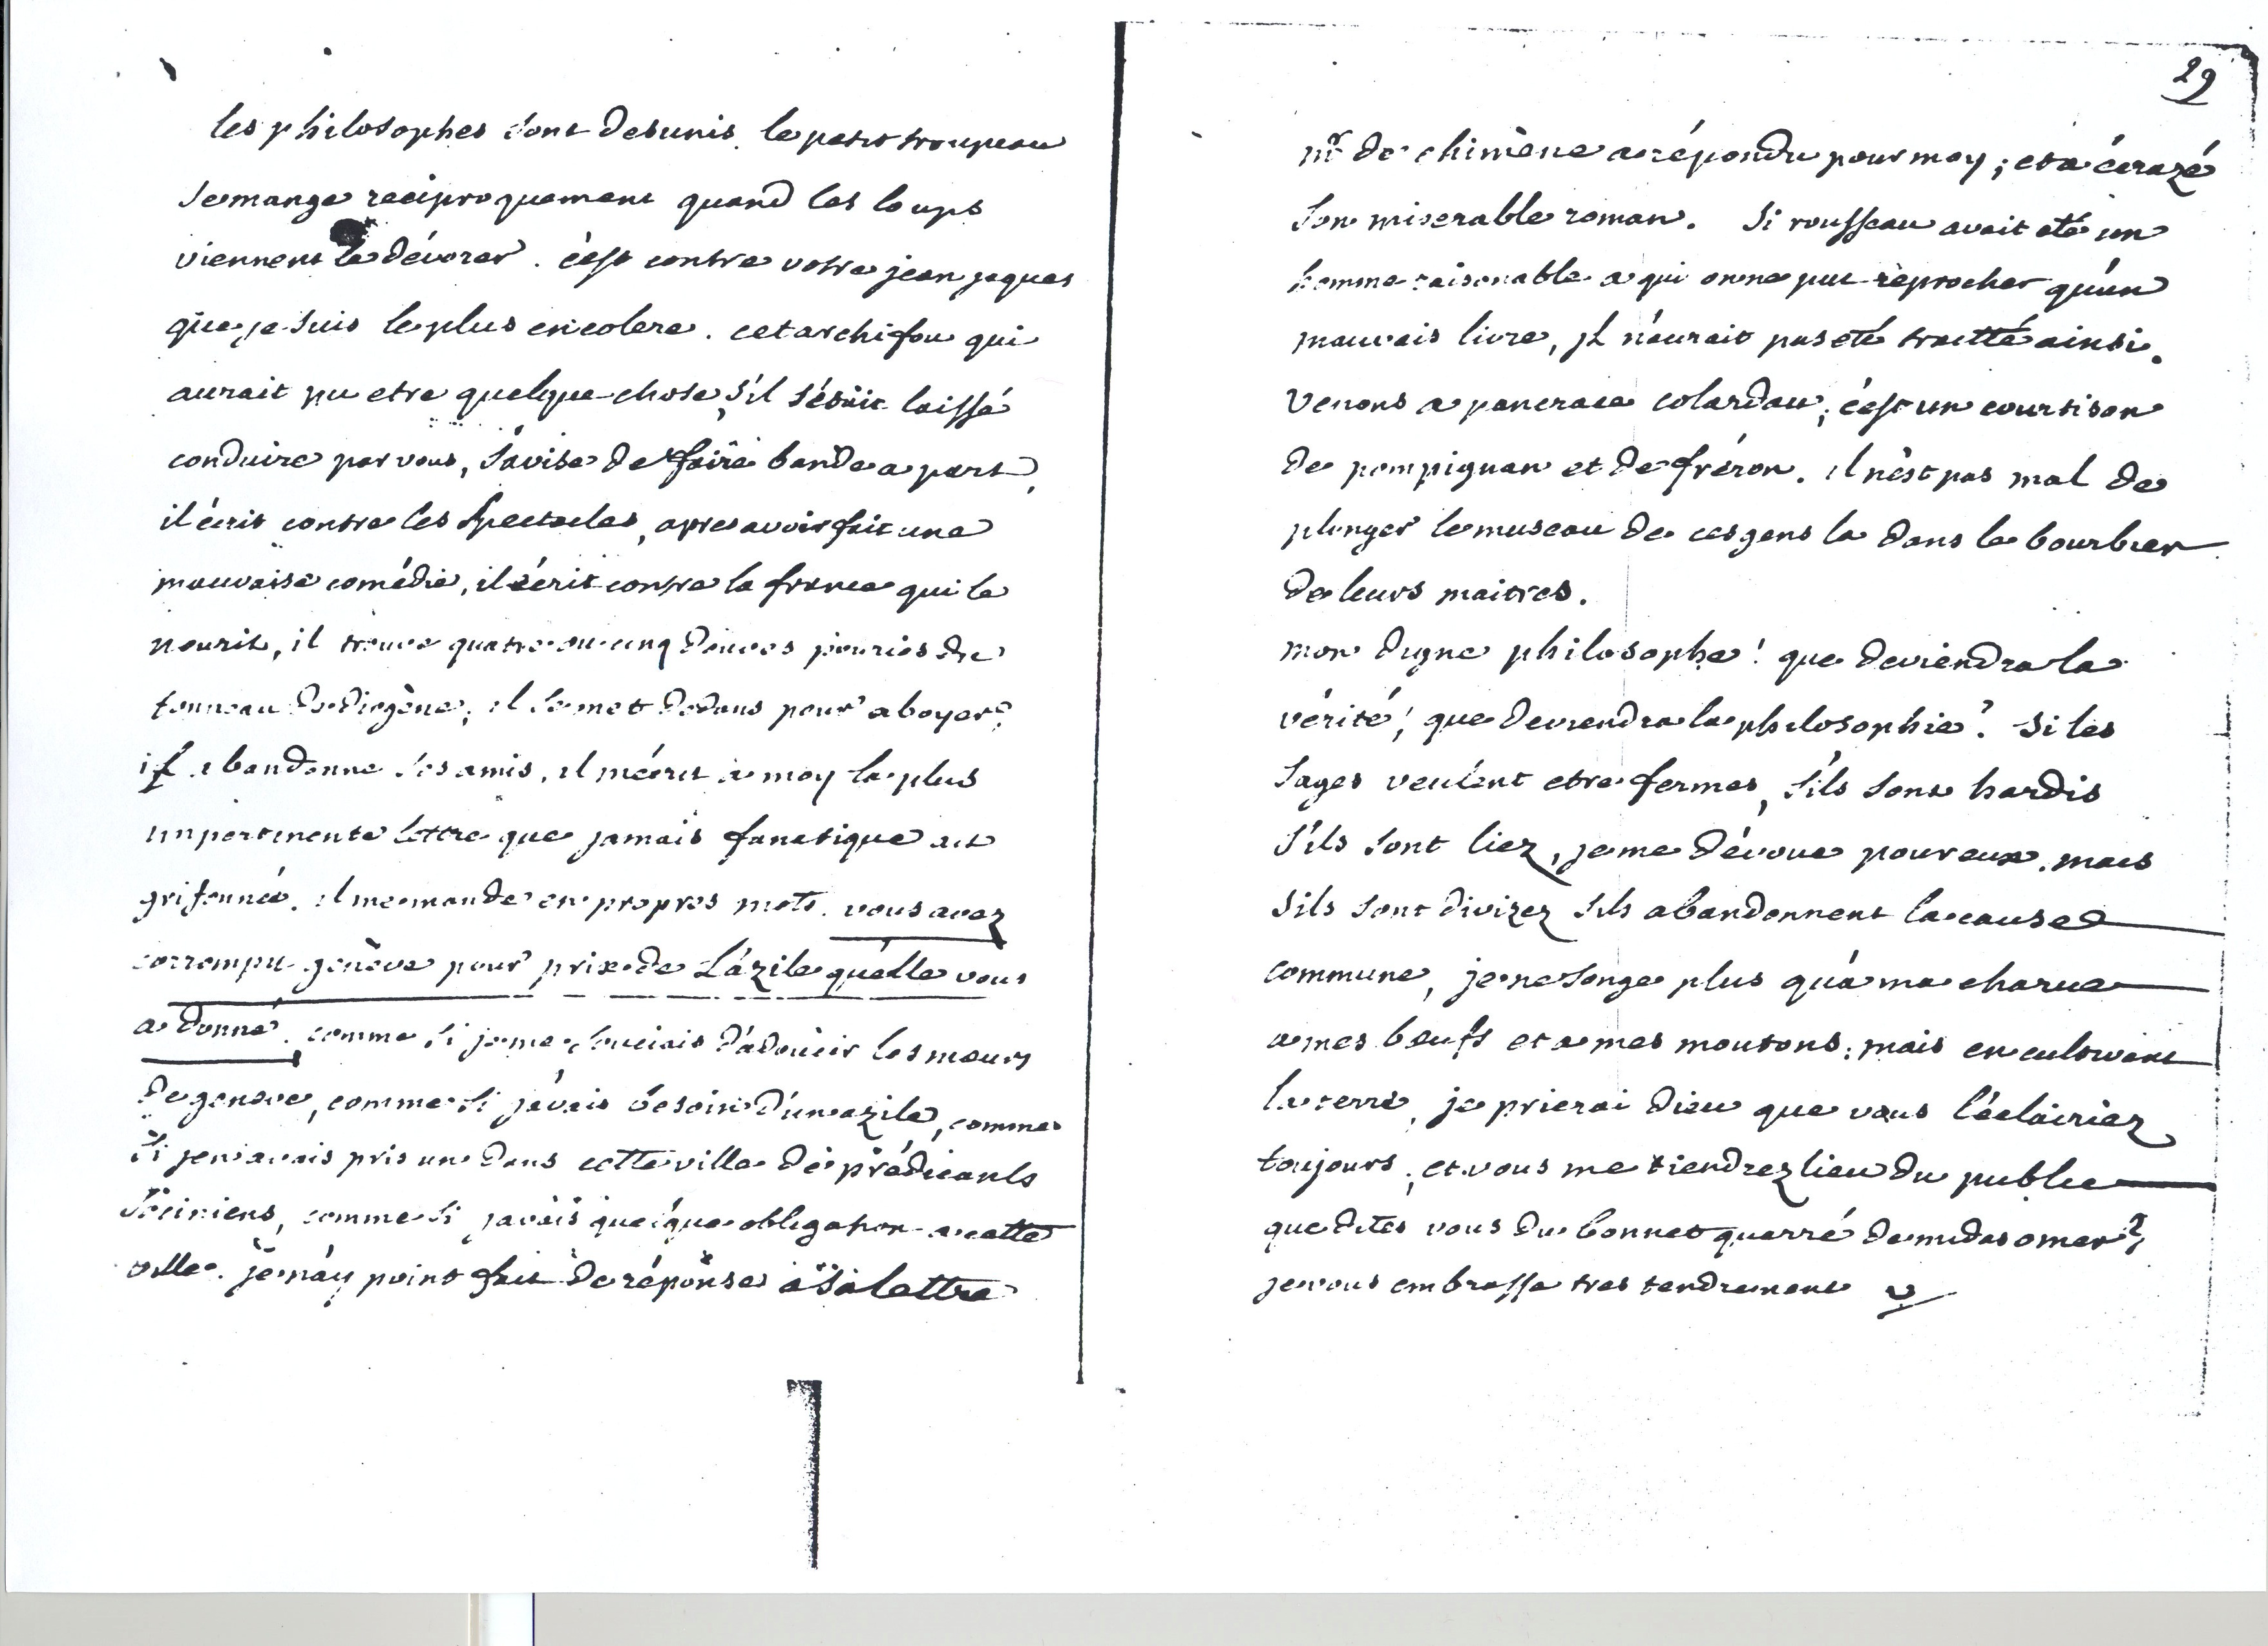 les philosophes sont desunis. le petit troupeau
se mange reciproquement quand les loups
viennent le dévorer. c'est contre votre jean jaques
que je suis le plus en colere. cet archifou qui
aurait pu etre quelque chose, s'il s'étoit laissé
conduire par vous, s'avise de faire bande a part,
il écrit contre les spectacles, apres avoir fait une
mauvaise comédie, il écrit contre la france qui le
nourit, il trouve quatre ou cinq douves pouries du
tonneau de diogène, il se met dedans pour aboyer;
il abandonne ses amis, il m'écrit a moy la plus
impertinente lettre que jamais fanatique ait
grifonnée. il me mande en propres mots. vous avez
corrompu genève pour prix de l'azile qu'elle vous
a donné. comme si je me souciais d'adoucir les mœurs
de geneve, comme si j'avais besoin d'un azile, comme
si j'en avais pris un dans cette ville de prédicants
sociniens, comme si j'avais quelque obligation a cette
ville. je n'ay point fait de réponse a sa lettre
29
mr de chimène a répondu pour moy; et a écrazé
son miserable roman. Si rousseau avait eté un
homme raisonable a qui on ne put reprocher qu'un
mauvais livre, il n'aurait pas eté traitté ainsi.
venons a pancrace colardau, c'est un courtisan
de pompignan et de fréron. il n'est pas mal de
plonger le museau de ces gens la dans le bourbier
de leurs maitres.
mon digne philosophe! que deviendra la
vérité! que deviendra la philosophie? Si les
sages veulent etre fermes, s'ils sont hardis
s'ils sont liez, je me dévoue pour eux. mais
s'ils sont divizez s'ils abandonnent la cause
commune, je ne songe plus qu'a ma charue
a mes bœufs et a mes moutons. mais en cultivant
la terre, je prierai dieu que vous l'éclairiez
toujours, et vous me tiendrez lieu du public
que dites vous du bonnet quarré de midas omer?
je vous embrasse tres tendrement V